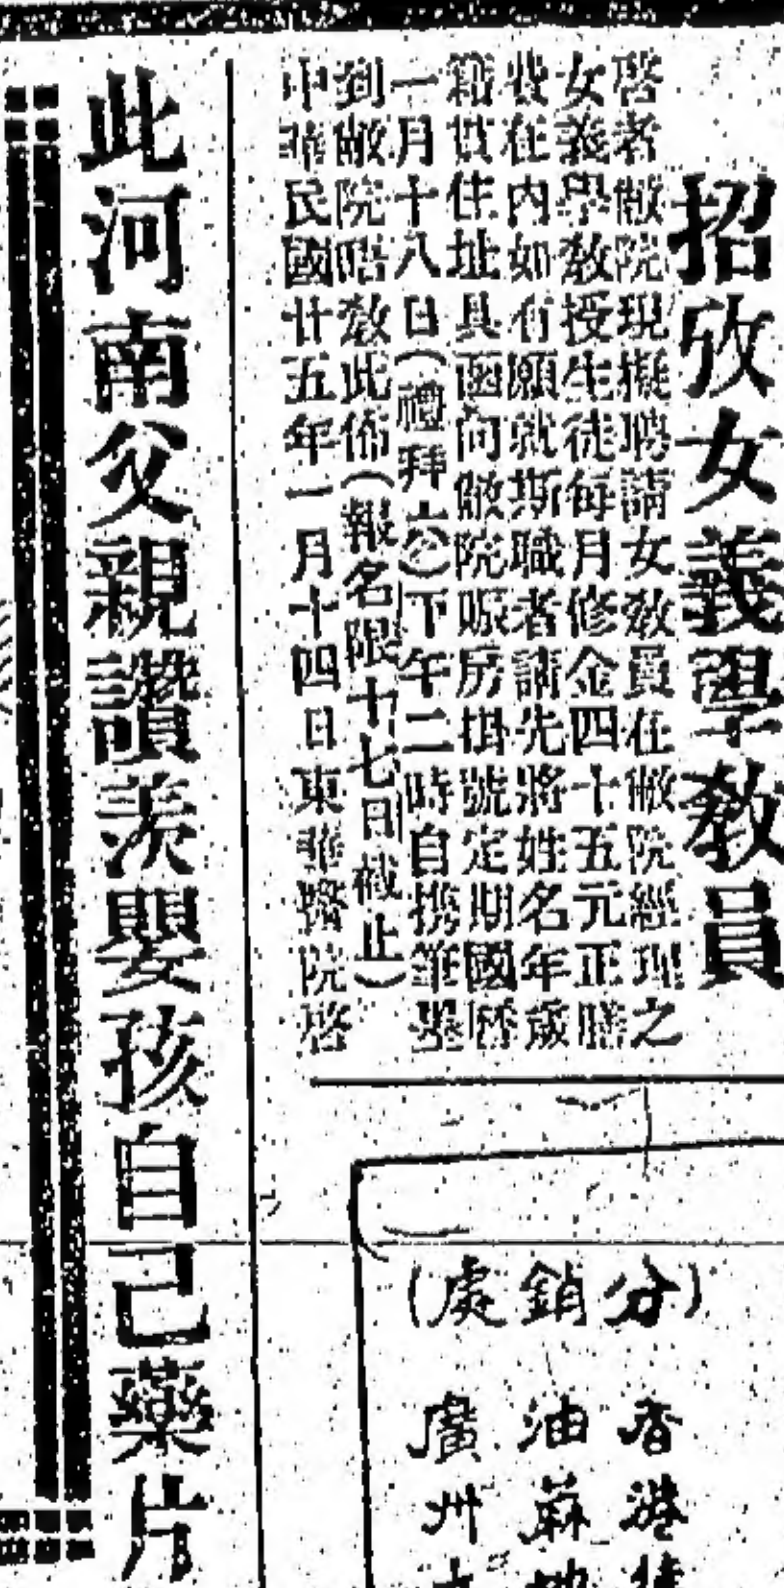 招攷女義學教員
啓者敝院現擬聘請女教員在敝院經理之
女義學教授生徒每月修金四十五元正膳
費在内如有願就斯職者請先將姓名年歲
籍貫住址具函向敝院賬房掛號定期國曆
一月十八日(禮拜六)下午二時自携筆墨
到敝院晤教此佈(報名限十七日截止)
中華民國廿五年一月十四日東華醫院啓
此河南父親讚羡嬰孩自己藥片
(分銷處)
香港
油蔴地
廣州